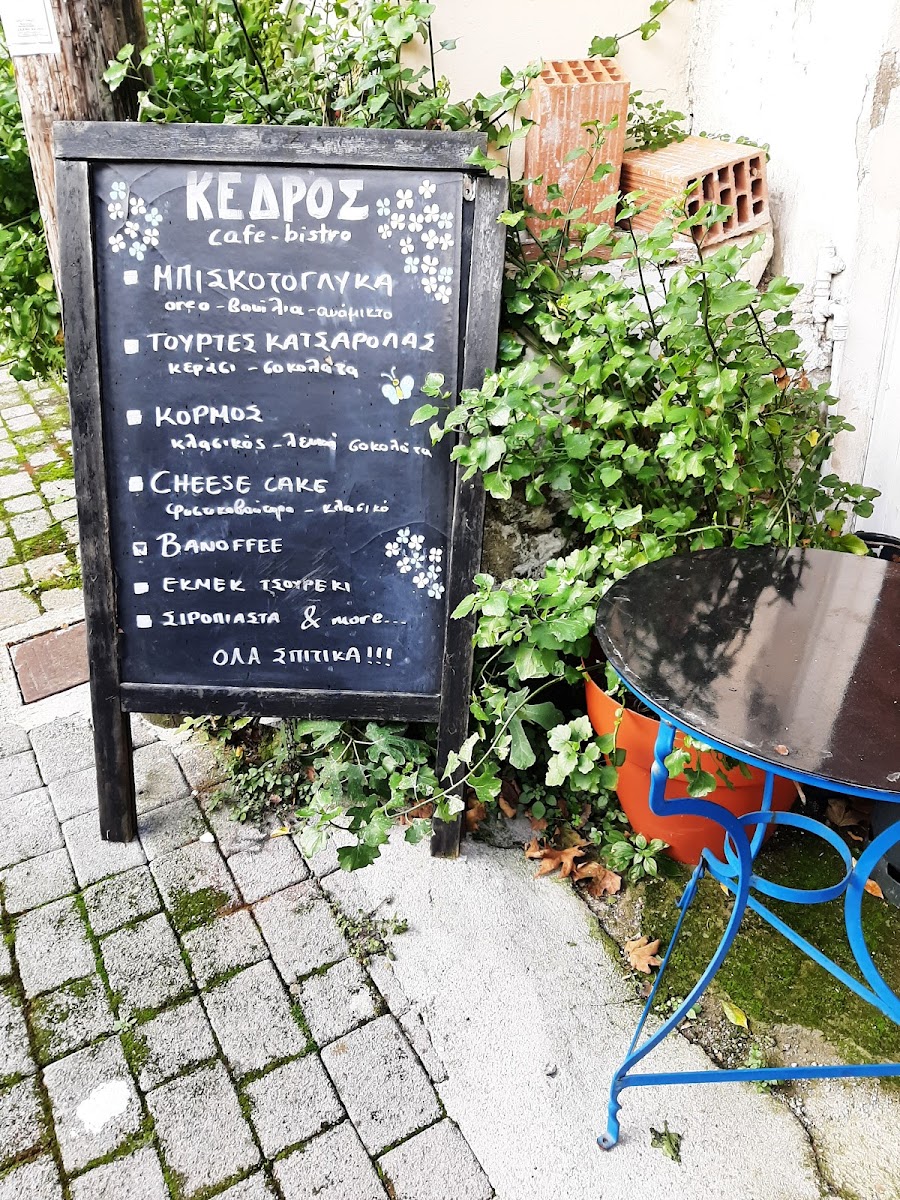 ΚΕΔΡΟΣ
cafe-bistro
ΜΠΙΣΚΟΤΟΓΛΥΚΑ
ορεο-βανίλια-ανάμικτο
ΤΟΥΡΤΕΣ ΚΑΤΣΑΡΟΛΑΣ
κεράσι - σοκολάτα
ΚΟΡΜΟΣ
κλασικός - λευκή σοκολάτα
CHEESE CAKE
φιστικοβούτυρο - κλασικό
BANOFFEE
ΕΚΜΕΚ ΤΣΟΥΡΕΚΙ
ΣΙΡΟΠΙΑΣΤΑ & more...
ΟΛΑ ΣΠΙΤΙΚΑ!!!